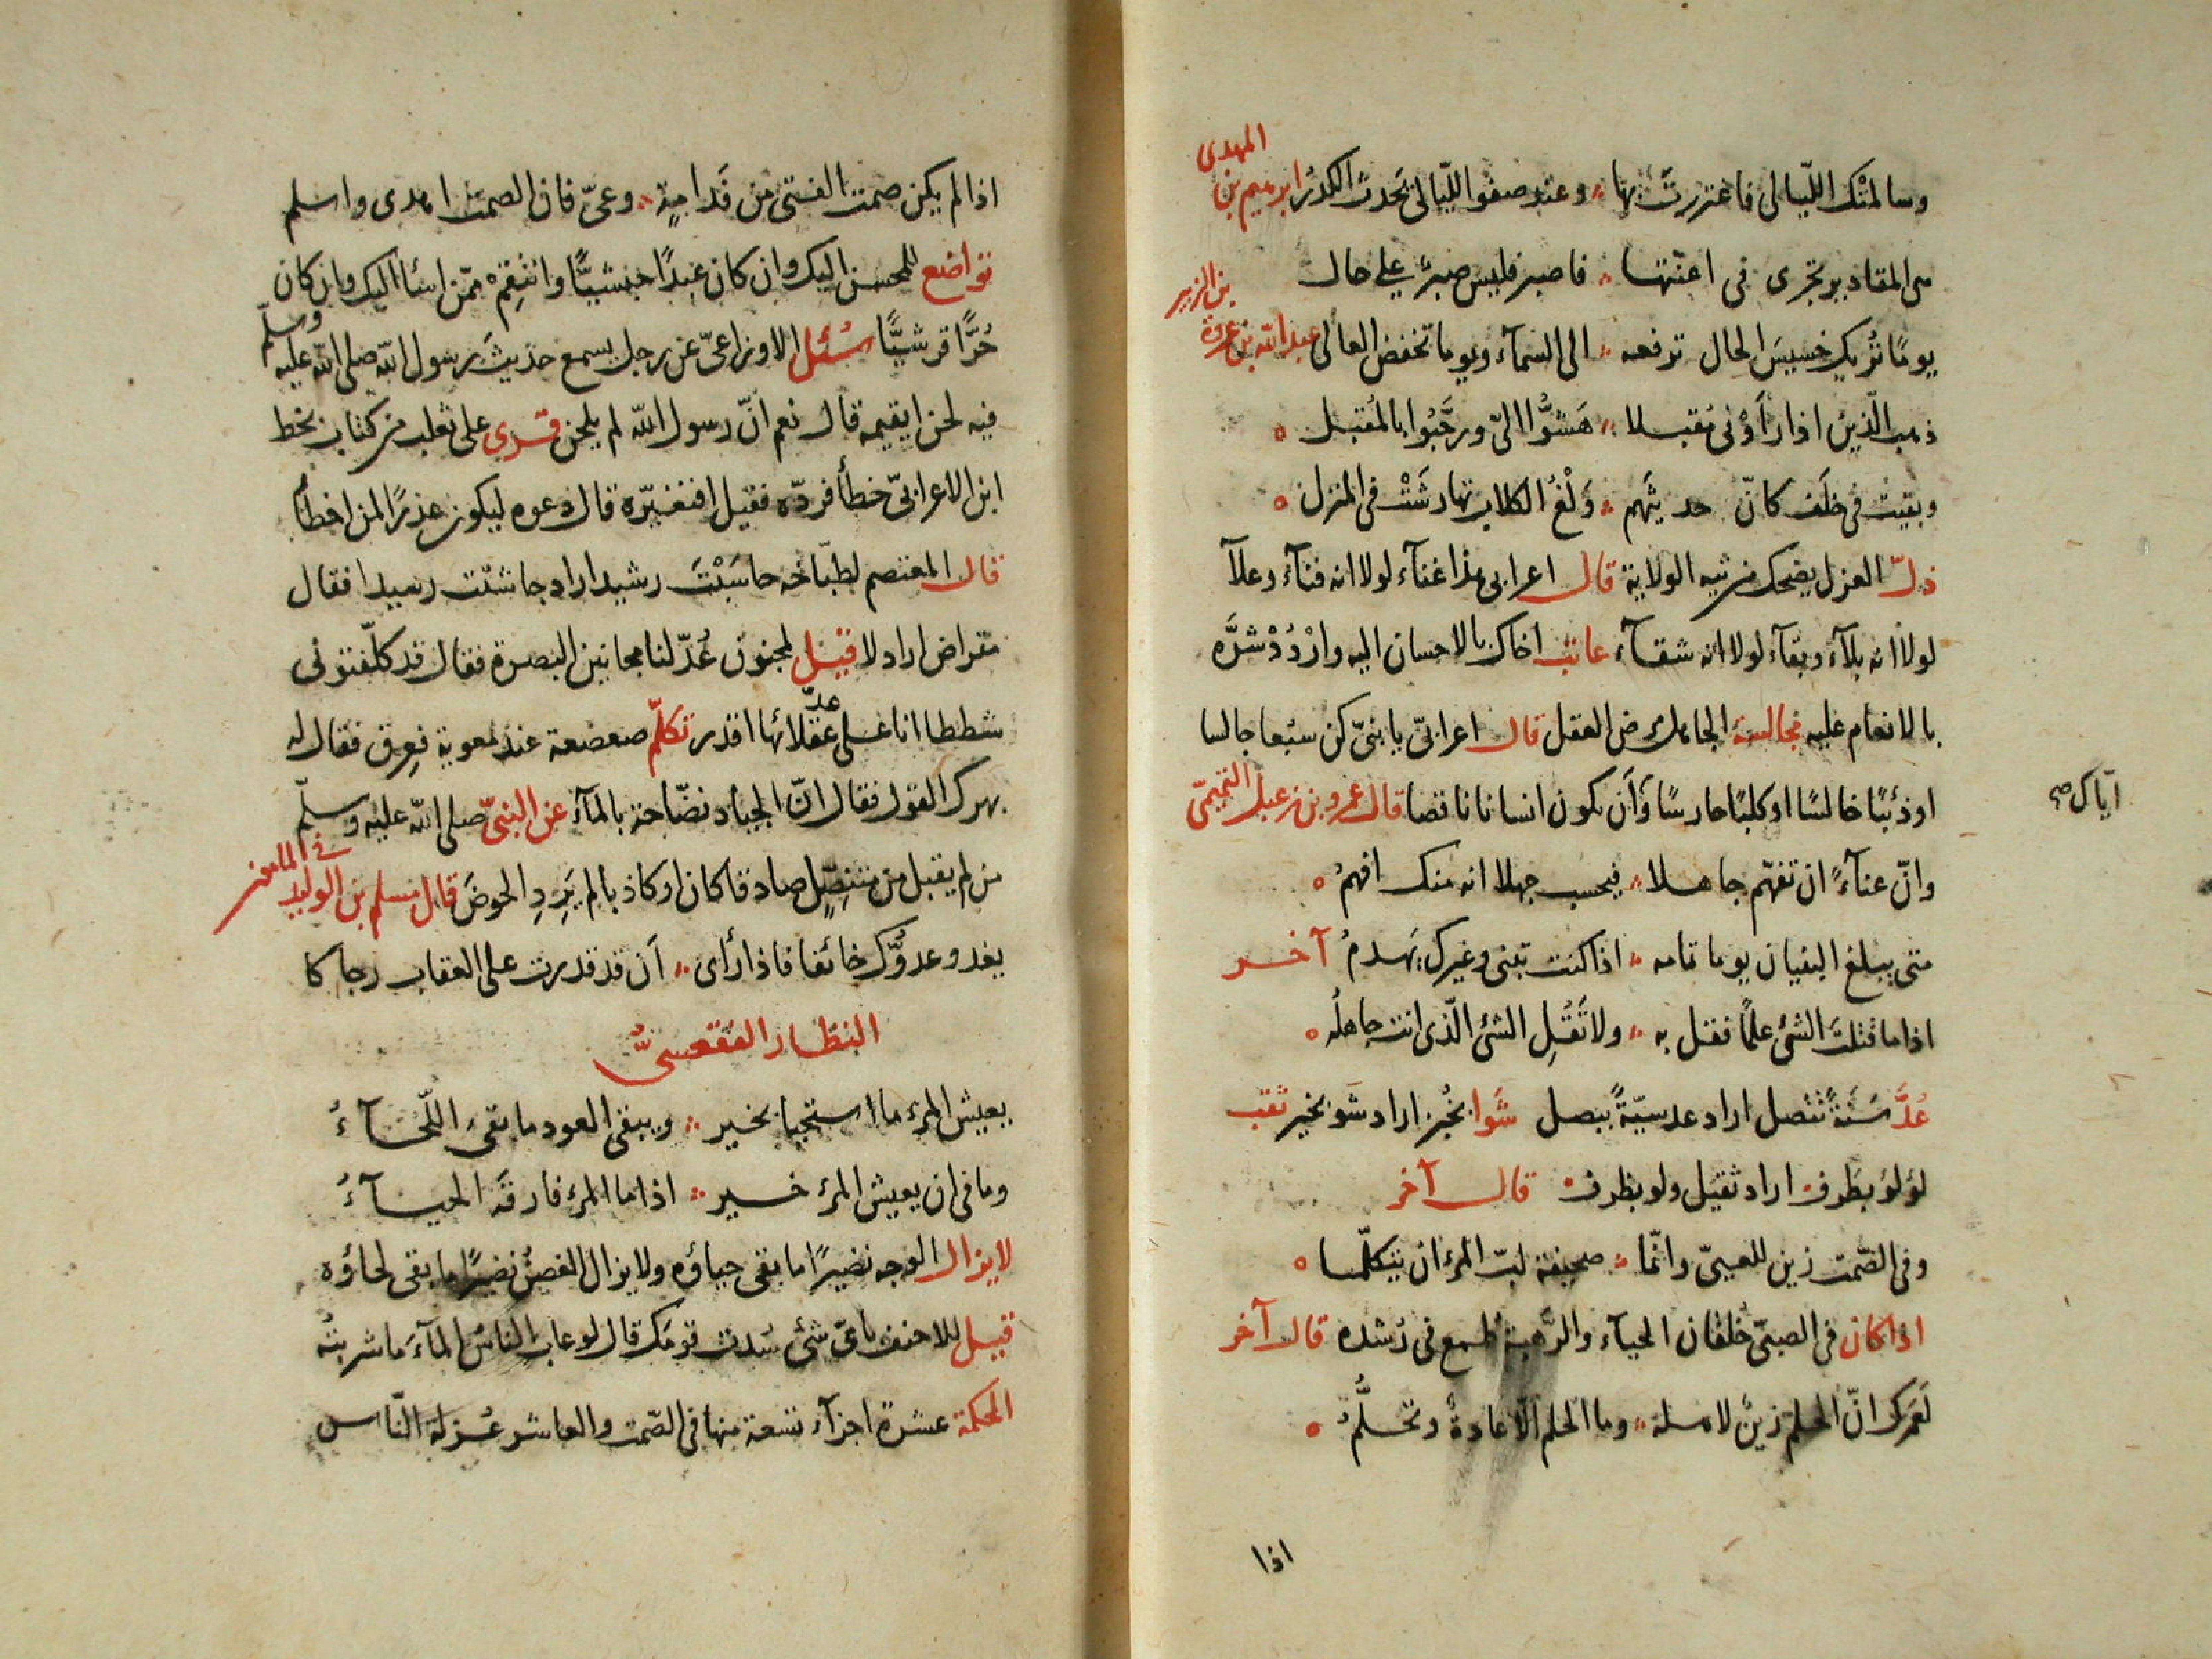 وسالمتْك اللّيالى فاغتررتَ بها ۞ وعند صفو اللّيالى يَحدث الكدرُ ابرهيم بن المهدى
هى المقادير تجرى فى اعنّتها ۞ فاصبر فليس صبرٌ على حال
يومًا تُريك خسيسَ الحال ترفعه ۞ الى السمآء ويوما تخفض العالى عبد الله بن عروة بن الزبير
ذهب الّذين اذا رأَوْنى مُقبلا ۞ هَشُّوا الىّ ورحَّبُوا بالمُقبل ه
وبقيت فى خلَف كانّ حديثَهم ۞ وَلْغُ الكلاب تهارشَتْ فى المنزل ه
ذلّ العزل يضحك من تيه الولاية قال اعرابى هذا غنآء لولا انه فنآءٌ وعلآ
لولا انه بلآء وبقآء لولا انه شقآء عاتب اخاك بالاحسان اليه وارْدُدْ شرَّه
بالانعام عليه مجالسة الجاهل مرض العقل قال اعرابىّ يا بنىّ كن سبُعا جالسا
اوذئبًا خالسًا اوكلبًا حارسًا وَأن تكون انسانا ناقصا قال عمرو بن زعبل التميمىّ
اياك صح
وانّ عنآءً ان تفهّم جاهلا ۞ فيحسب جهلا انه منك افهمُ ه
متى يبلغ البنيان يوما تمامه ۞ اذا كنت تبنى وغيرك يهدمُ آخر
اذا ما قتلتَ الشئ علمًا فقل به ۞ ولا تَقُلِ الشئ الّذى انت جاهلُه ه
عُدَّ سَنَةً تنصل اراد عدسيّةً ببصل شَوا بخُبز اراد شو بخير ثقب
لؤلؤ بطرف اراد ثقيل ولو بظرف قال آخر
وفى الصّمت زين للعيىّ وانّما ۞ صحيفة لبّ المرءِ ان يتكلّما ه
اذا كان فى الصبىّ خلقان الحيآء والرّهبة طُمع فى رُشده قال آخر
لَعمركَ انّ الحلم زينٌ لاهله ۞ وما الحلم الّا عادةٌ وتحلُّمُ ه
اذا
اذا لم يكن صمت الفتى من فَدامةٍ ۞ وعىّ فان الصمتَ اهدى واسلم
تواضع للمحسن اليك وان كان عَبدًا حبشيًّا وانتقِمْ ممّن اسآ اليك وان كان
حُرًّا قرشيًّا سُئل الاوزاعىّ عن رجل يسمع حديثَ رسول الله صلى الله عليه وسلّم
فيه لحن ايقيمه قال نعم انّ رسول الله لم يلحن قرى على ثعلب من كتاب بخط
ابن الاعرابىّ خطأ فردّه فقيل افنغيّره قال دعوه ليكون عذرًا لمن اخطأ
قال المعتصم لطبّاخه حاسَبْتَ رشيدا اراد جاشنت رسيدا فقال
مقراض اراد لا قيل لمجنون عُدّ لنا مجانين البصرة فقال قد كلّفتونى
شططا انا على عدّ عقلائها اقدر تكلّم صعصعة عند معوية فعرِق فقال له
بهرك القول فقال انّ الجياد نضّاحة بالمآء عن النبىّ صلى الله عليه وسلّم
من لم يقبل من متنصِّلٍ صادقا كان او كاذبا لم يَرِدِ الحوضَ قال مسلم بن الوليد فى المامون
يغدو عدوُّك خائفا فاذا رأى ۞ اَن قد قدرت على العقاب رجاكا
النظار الفقعسىّ
يعيش المرء ما استحيا بخير ۞ ويبقى العود ما بقى اللّحآءُ
وما فى ان يعيش المرء خير ۞ اذا ما المرء فارقَه الحيآءُ
لايزال الوجه نضيرًا ما بقى حياؤه ولايزال الغصنُ نضيرًا ما بقى لحاؤه
قيل للاحنف باىّ شئ سُدت قومَك قال لو عاب الناسُ المآءَ ما شربتُه
الحكمة عشرة اجزآء تسعة منها فى الصّمت والعاشر عُزلة النّاس